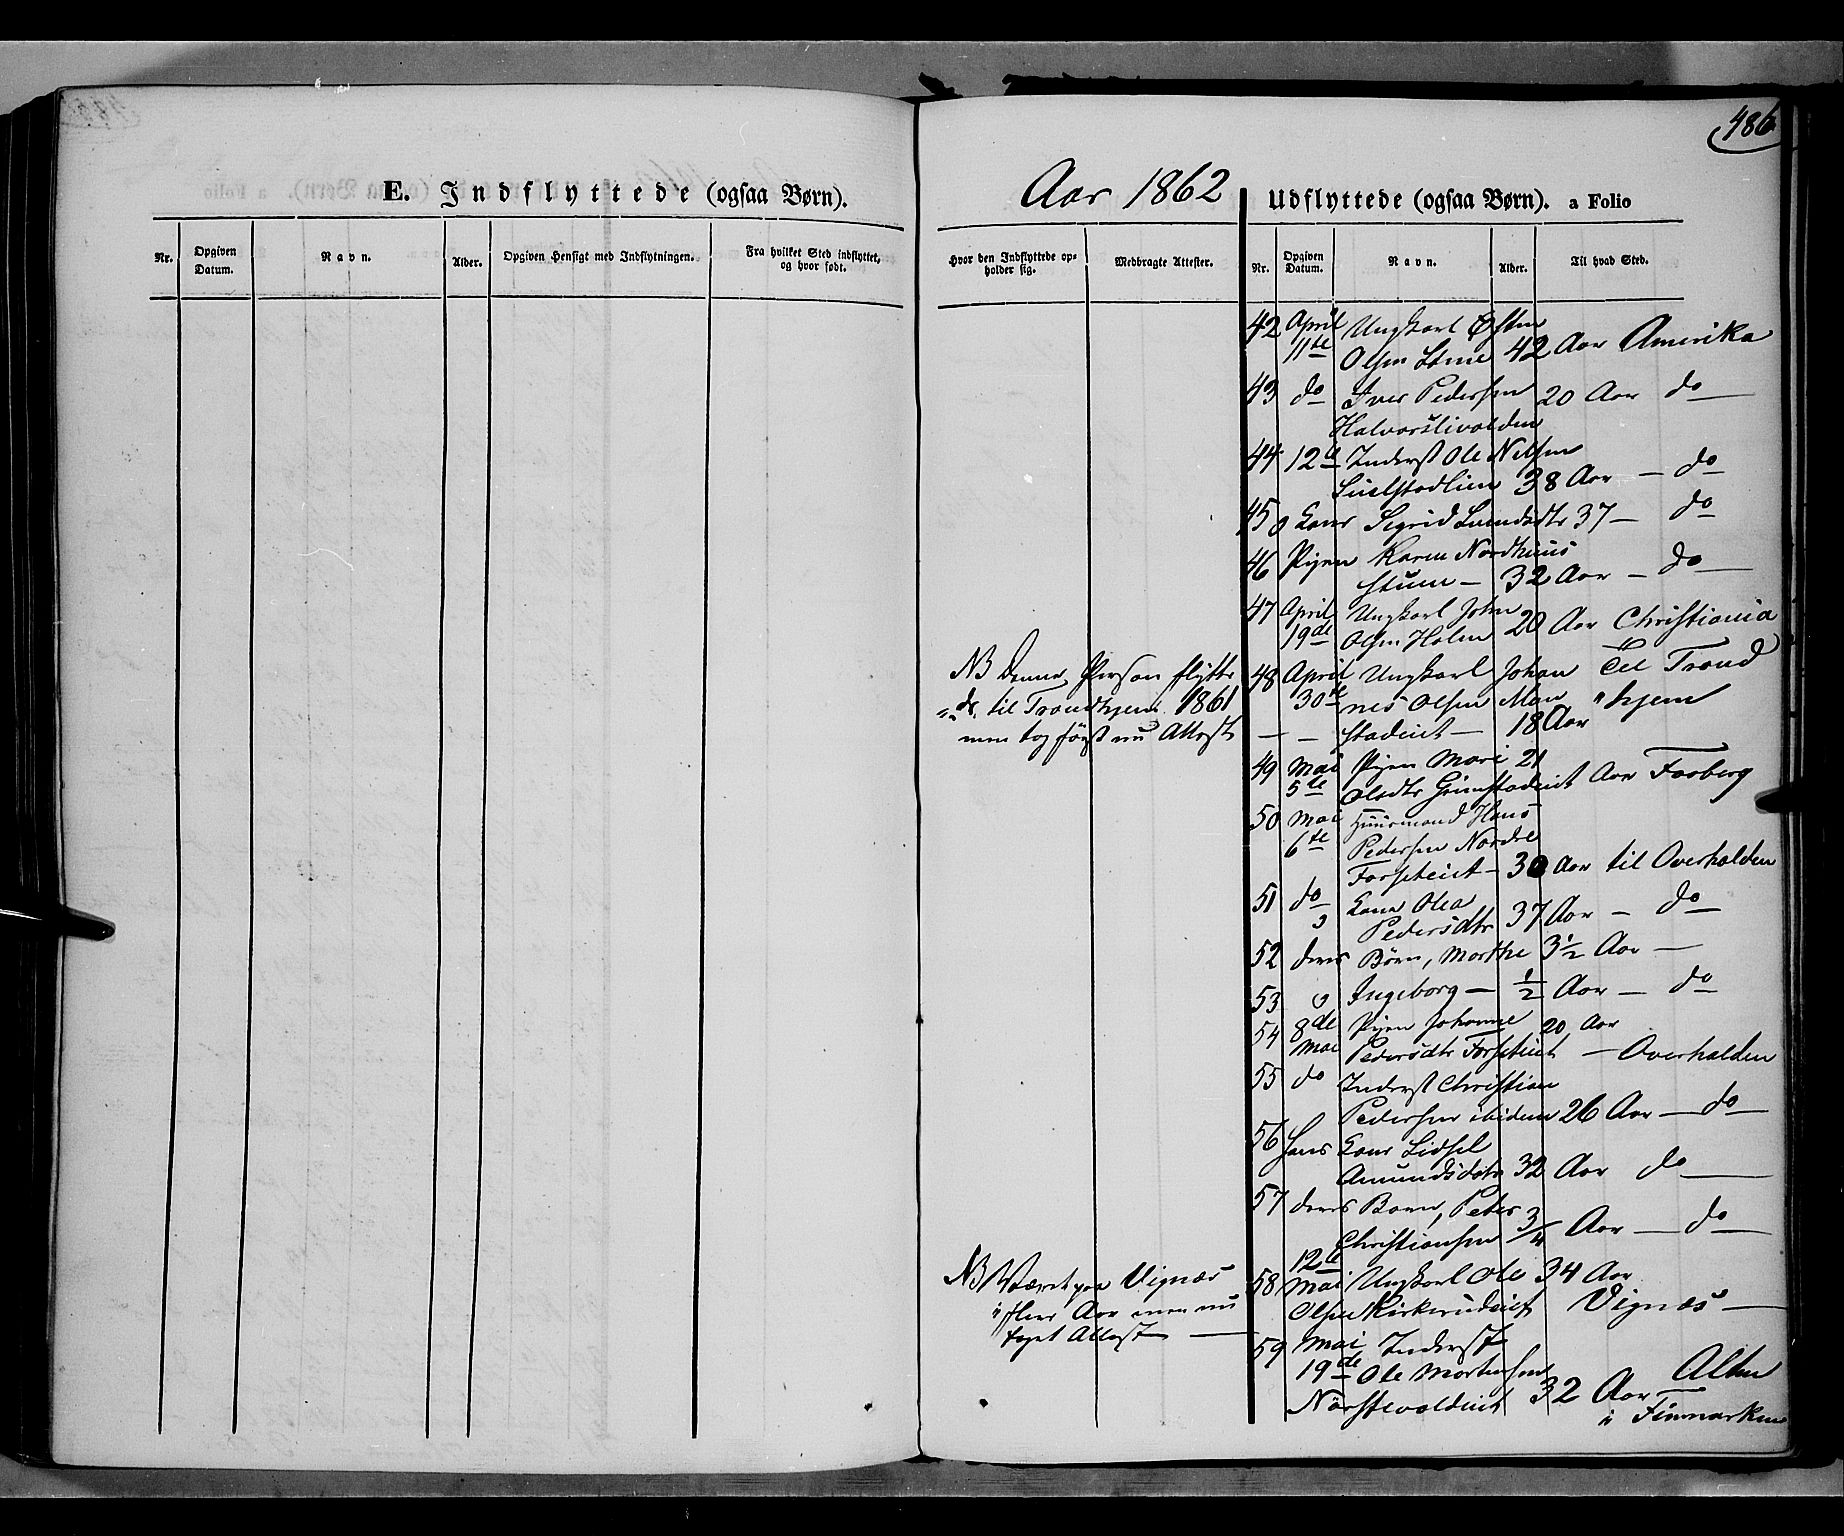 486
E. Indflyttede (ogsaa Børn).
Aar 1862
Udflyttede (ogsaa Børn). a Folio
Nr.
Opgiven
Datum.
Navn.
Alder.
Opgiven Hensigt med Indflytningen.
Fra hvilket Sted indflyttet,
og hvor født.
Hvor den Indflyttede op-
holder sig.
Medbragte Attester.
Nr.
Opgiven
Datum.
Navn.
Alder.
Til hvad Sted.
42 April Ungkarl Østen
11te Olsen 42 Aar Amerika
43 do Iver Pedersen 20 Aar do
44 12te Inderst Ole Nilsen
38 Aar — do
45 Kone Sigrid 37 — do
46 Pigen Karen Nordhuus
32 Aar — do
47 April Ungkarl John
19de Olsen Holen 20 Aar Christiania
NB Denne Person flytte
de til Trondhjem 1861
men tog først nu Attest
48 April Ungkarl Johan Til Trond
30te nes Olsen Mon hjem
stadeiet — 18 Aar
49 Mai Pigen Mari 21
5te Olsdtr Grimstadeiet Aar Faaberg
50 Mai Huusmand Hans
6te Pedersen Nordre
Forseteiet — 30 Aar til Overhalden
51 do Kone Olea
Pedersdtr 37 Aar — do
52 deres Børn, Marthe 3½ Aar —
53 Ingeborg — ½ Aar — do
54 8de Pigen Johanne 20 Aar
Mai Pedersdtr Forseteiet — Overhalden
55 do Inderst Christian
Pedersen ibidem 26 Aar — do
56 hans Kone Lidsel
Amundsdatr 32 Aar do —
57 deres Barn, Peter
Christiansen 3/4 Aar — do
NB Været paa Vignæs
i flere Aar men nu
taget Attest —
12te
58 Mai Ungkarl Ole 34 Aar
Olsen Kirkerudeiet Vignæs —
59 Mai Inderst
19de Ole Mortensen Alten
32 Aar — i Finmarken